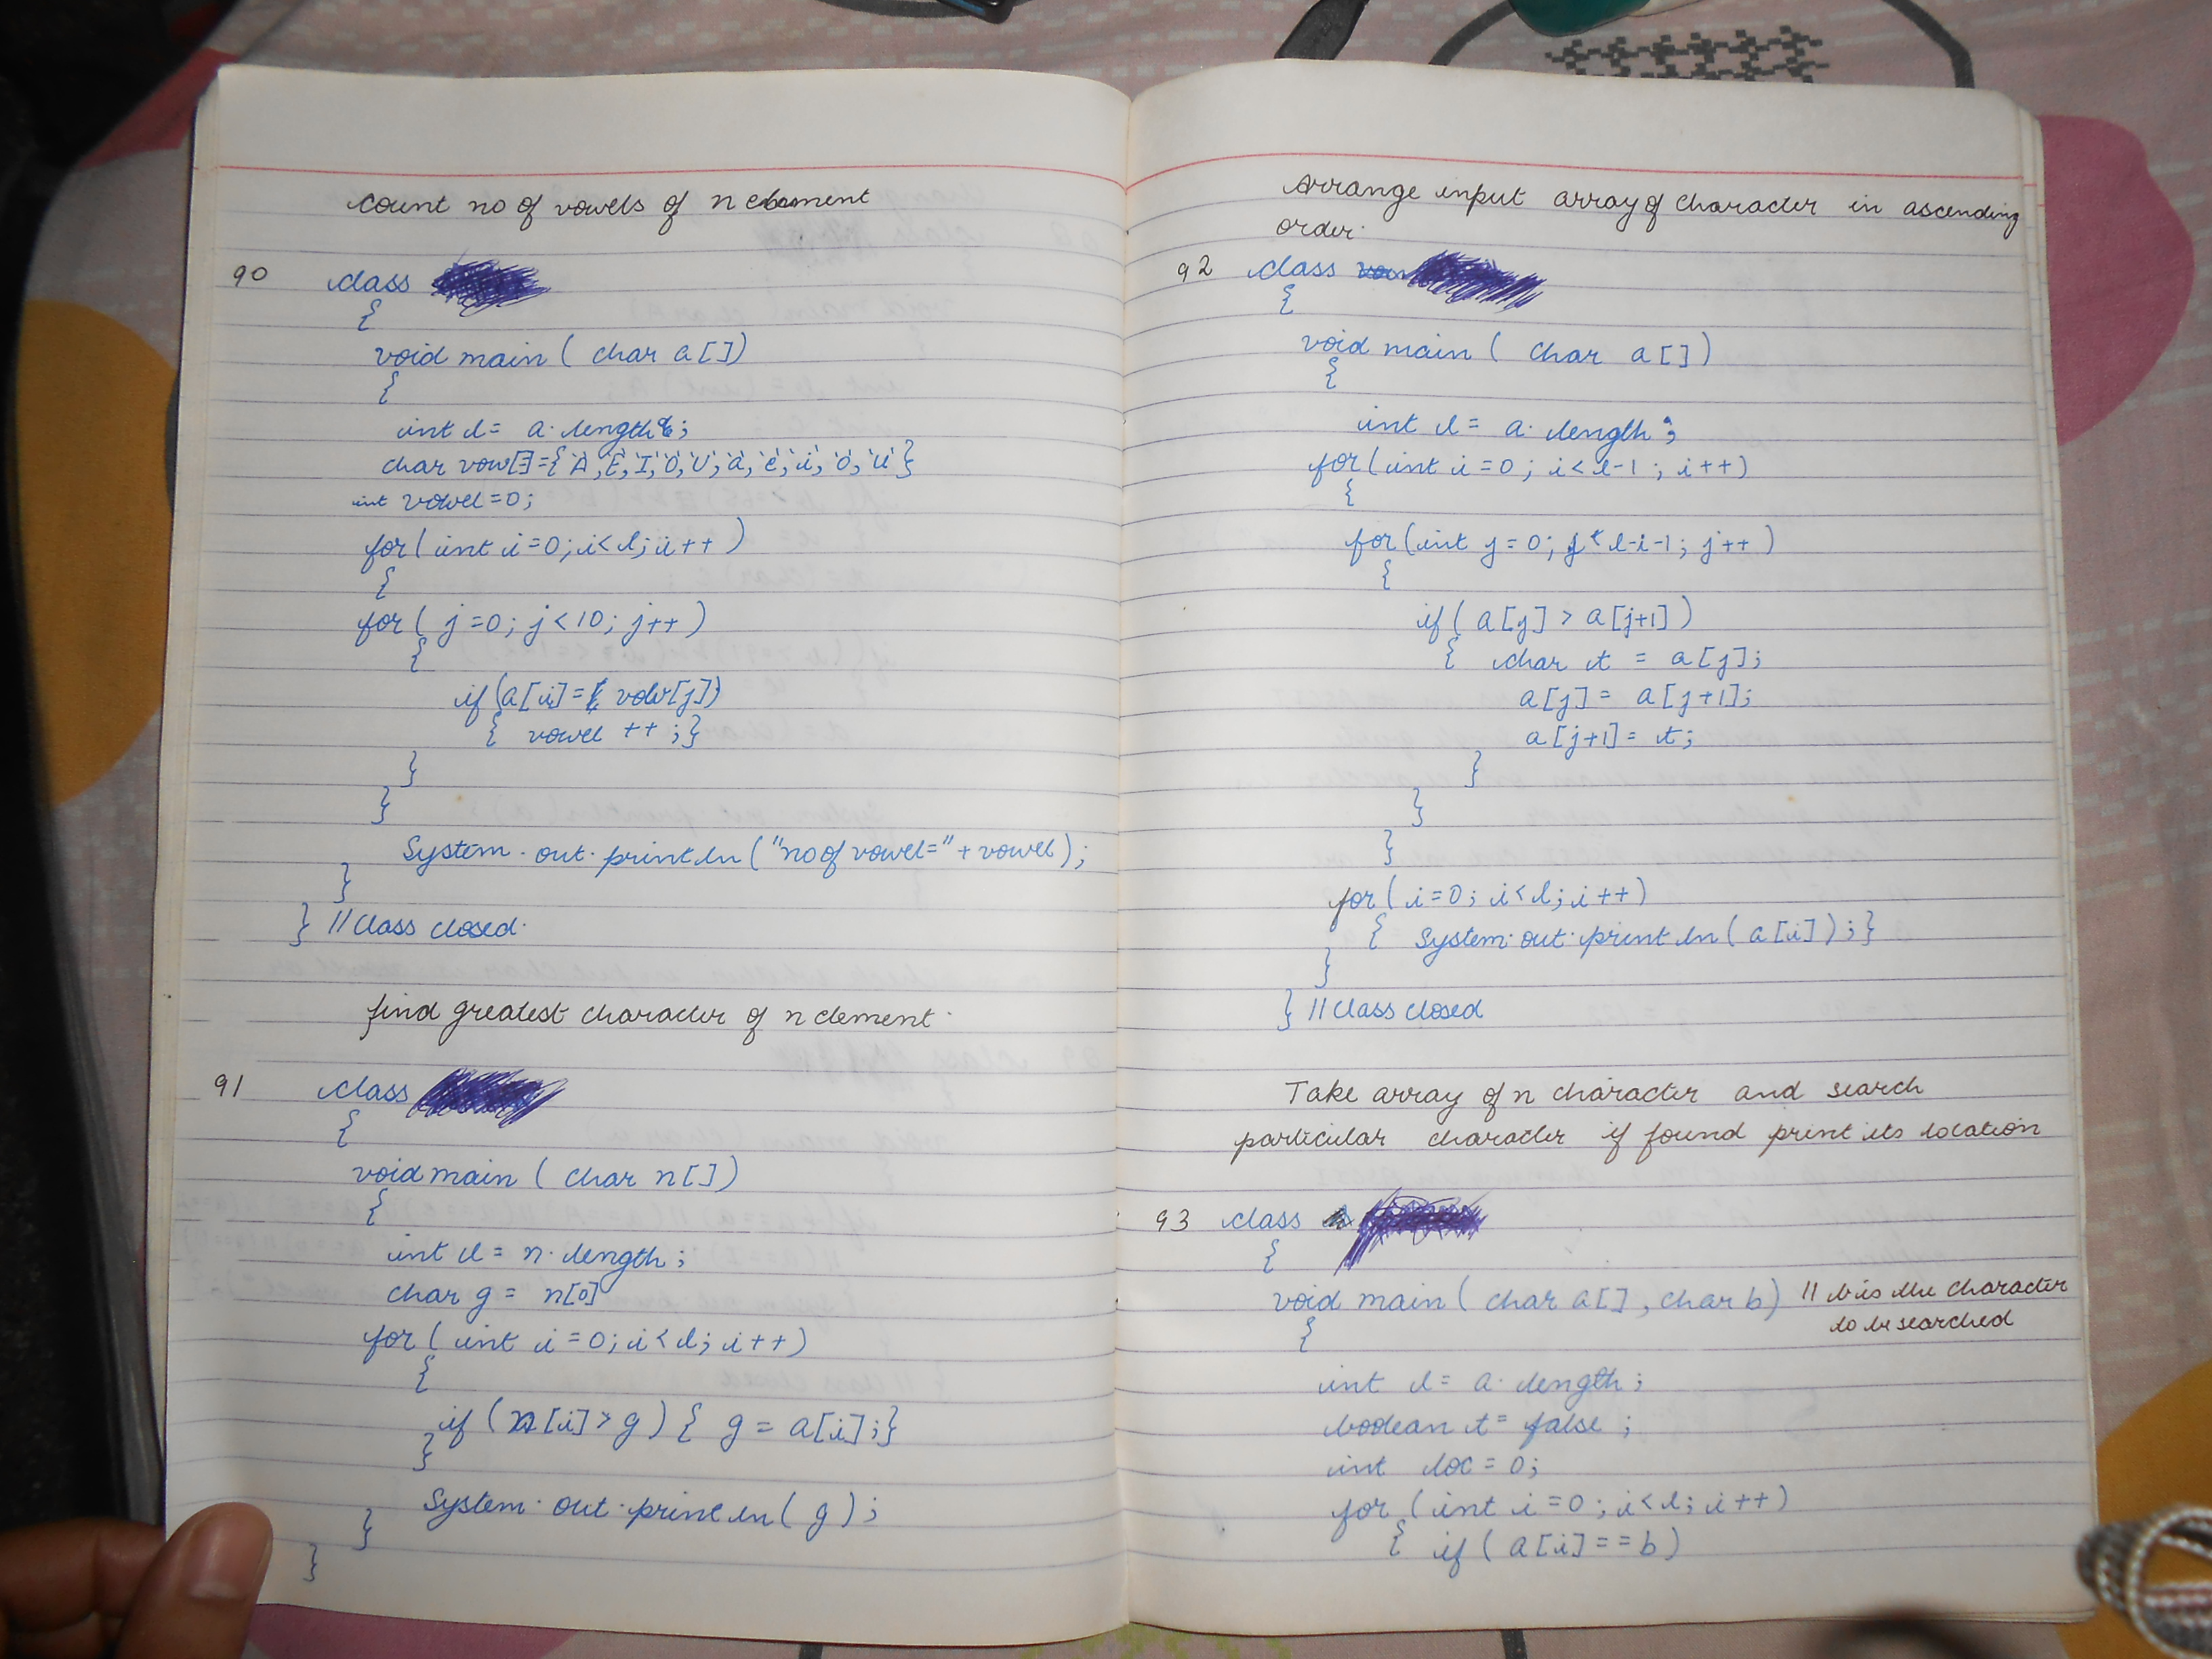 count no of vowels of n element
90 class
{
void main ( char a[])
{
int l = a.length;
char vow[]={'A','E','I','O','U','a','e','i','o','u'}
int vowel=0;
for(int i=0;i<l;i++)
{
for( j=0; j<10; j++)
{
if(a[i]== vow[j])
{ vowel ++ ;}
}
}
System.out.println("no of vowel="+vowel);
}
} //class closed.
find greatest character of n element.
91 class
{
void main ( char n[])
{
int l = n.length;
char g = n[0]
for( int i=0;i<l; i++)
{
if (n[i]>g) { g = a[i];}
}
System.out.println( g );
}
}
Arrange input array of character in ascending
order.
92 class
{
void main ( char a[])
{
int l = a.length;
for(int i=0; i<l-1; i++)
{
for(int j=0; j<l-i-1; j++)
{
if( a[j] > a[j+1])
{ char t = a[j];
a[j] = a[j+1];
a[j+1] = t;
}
}
}
for( i=0; i<l; i++)
{ System.out.println( a[i]);}
}
} //class closed
Take array of n character and search
particular character if found print its location
93 class
{
void main ( char a[], char b) // b is the character
to be searched
{
int l = a.length;
boolean t = false ;
int loc = 0;
for (int i=0; i<l; i++)
{ if ( a[i]==b)